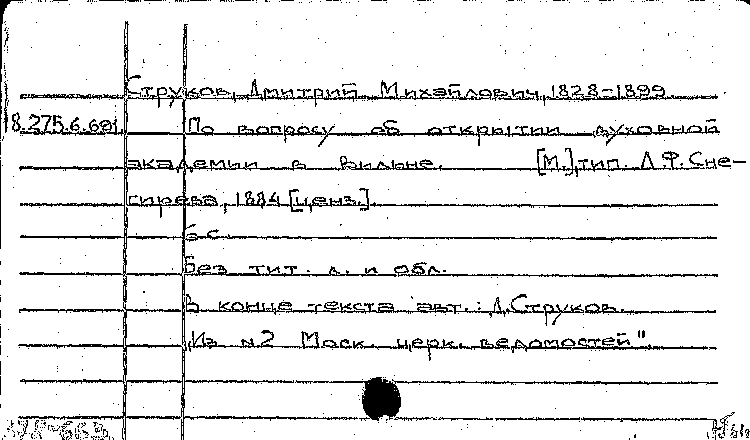 Струков, Дмитрий Михайлович, 1828-1899.
8.275.6.691. По вопросу об открытии духовной
академии в Вильне. [М.], тип. Л.Ф. Сне-
гирева, 1884 [ценз.].
6 с.
Без тит. л. и обл.
В конце текста авт.: Д. Струков.
"Из N2 Моск. церк. ведомостей".